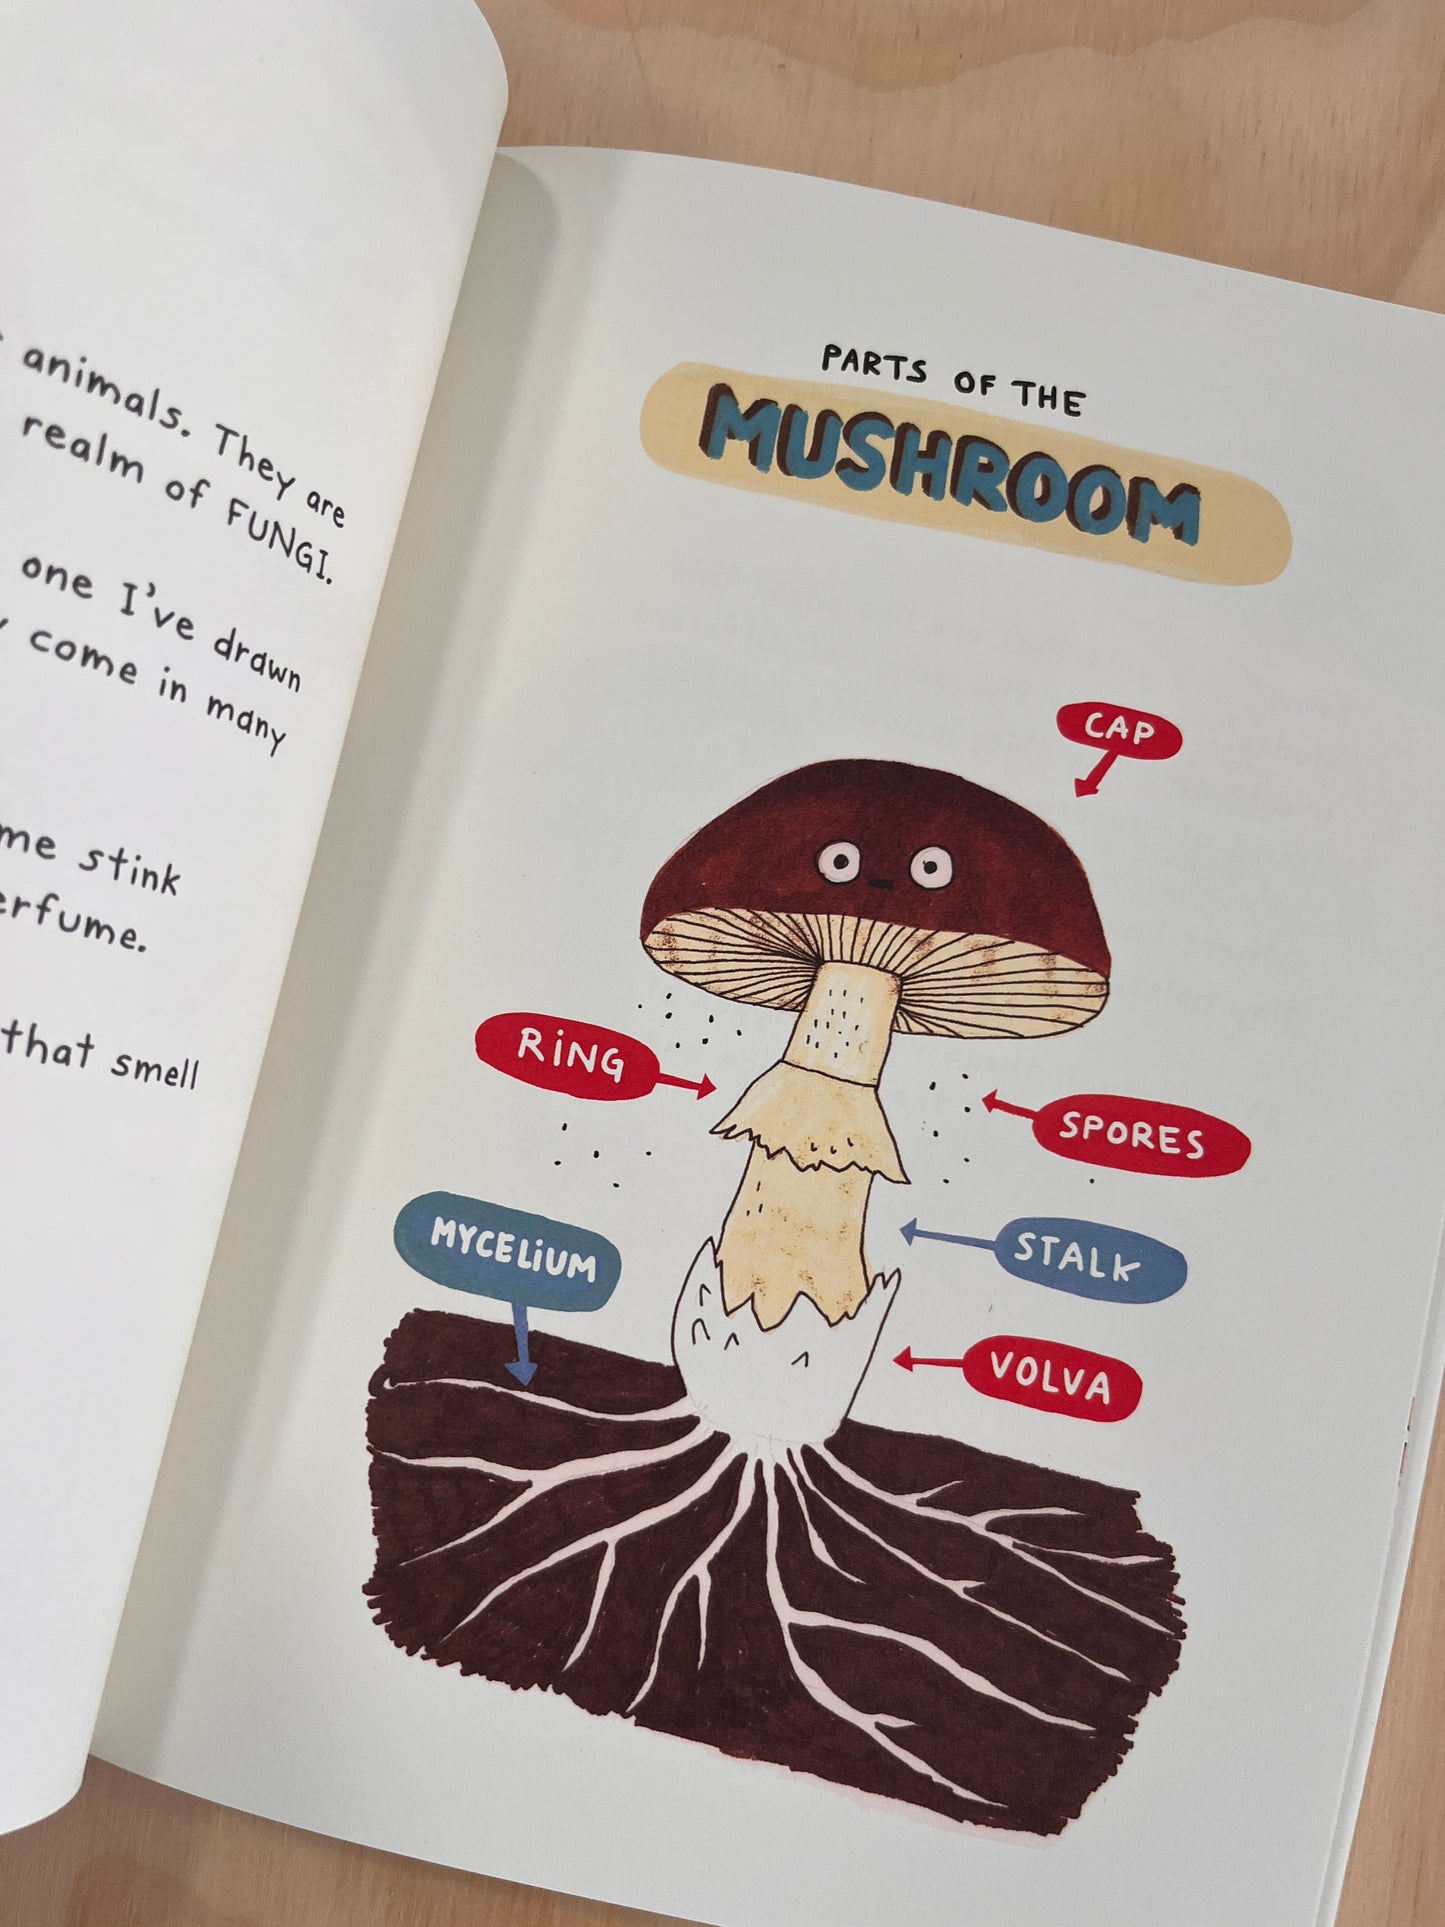 animals. They are
realm of FUNGI.
one I've drawn
come in many
stink
that smell
PARTS OF THE
MUSHROOM
CAP
RiNG
SPORES
MYCELiUM
STALK
VOLVA